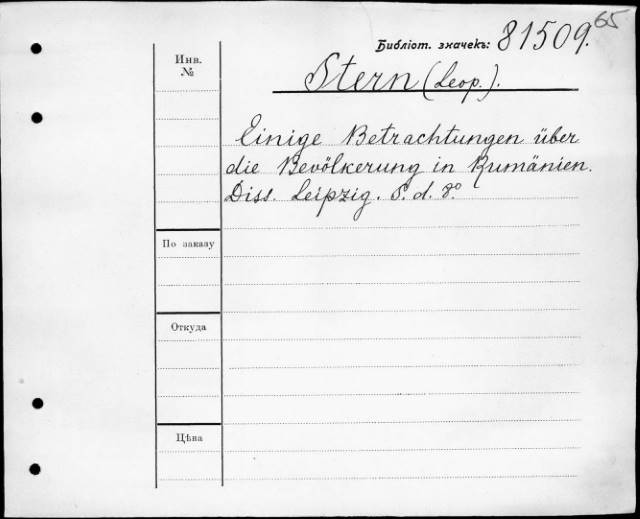 65
Библіот. значекъ: 81509.
Инв.
№
Stern (Leop.).
Einige Betrachtungen über
die Bevölkerung in Rumänien.
Diss. Leipzig. S. d. 8°
По заказу
Откуда
Цѣна